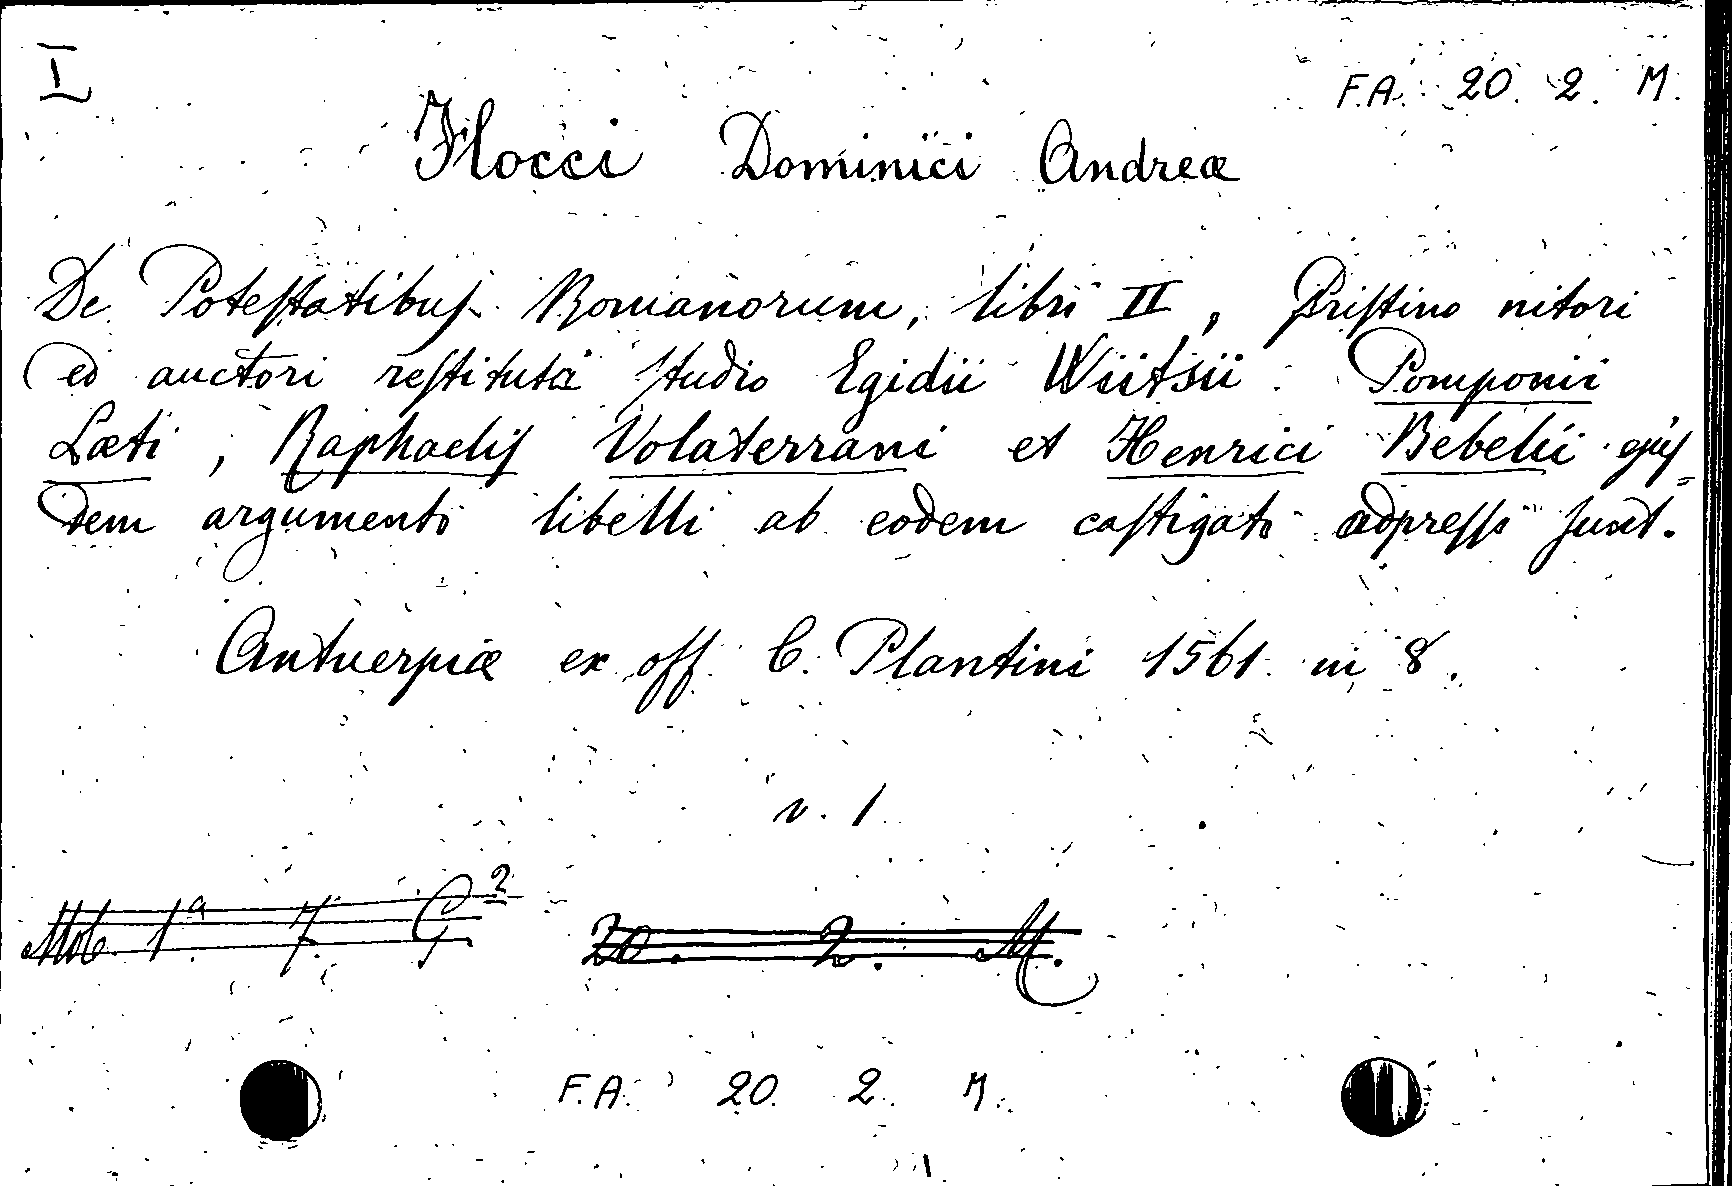 I
F.A. 20. 2. M.
Flocci Dominici Andreæ
De Potestatibus Romanorum, libri II, Pristino nitori
ed auctori restituta studio Egidii Wiitsii. Pomponii
Læti, Raphaelis Volaterrani et Henrici Bebelii ejus=
dem argumenti libelli ab eodem castigati adpressi sunt.
Antuerpiæ ex off. C. Plantini 1561 in 8.
v. 1
Mob. 1ª. 7. G² 20. 2. M.
F.A. 20. 2. M.